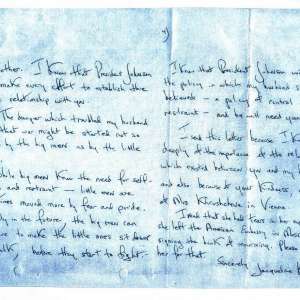 other. I know that President Johnson
make every effort to establish the
relationship with you
The danger which troubled my husband
that war might be started not so
by the big men as by the little
While big men know the need for self-
and restraint — little men are
times moved more by fear and pride.
in the future the big men can
to make the little ones sit down
talk, before they start to fight.
4)
I know that President Johnson will
the policy in which my husband so
believed — a policy of control
restraint — and he will need your
I send this letter because I know
deeply of the importance of the rel
which existed between you and my h
and also because of your kindness,
of Mrs Khrushcheva in Vienna.
I read that she had tears in her eyes
she left the American Embassy in Mosc
signing the book of mourning. Please
her for that.
Sincerely
Jacqueline